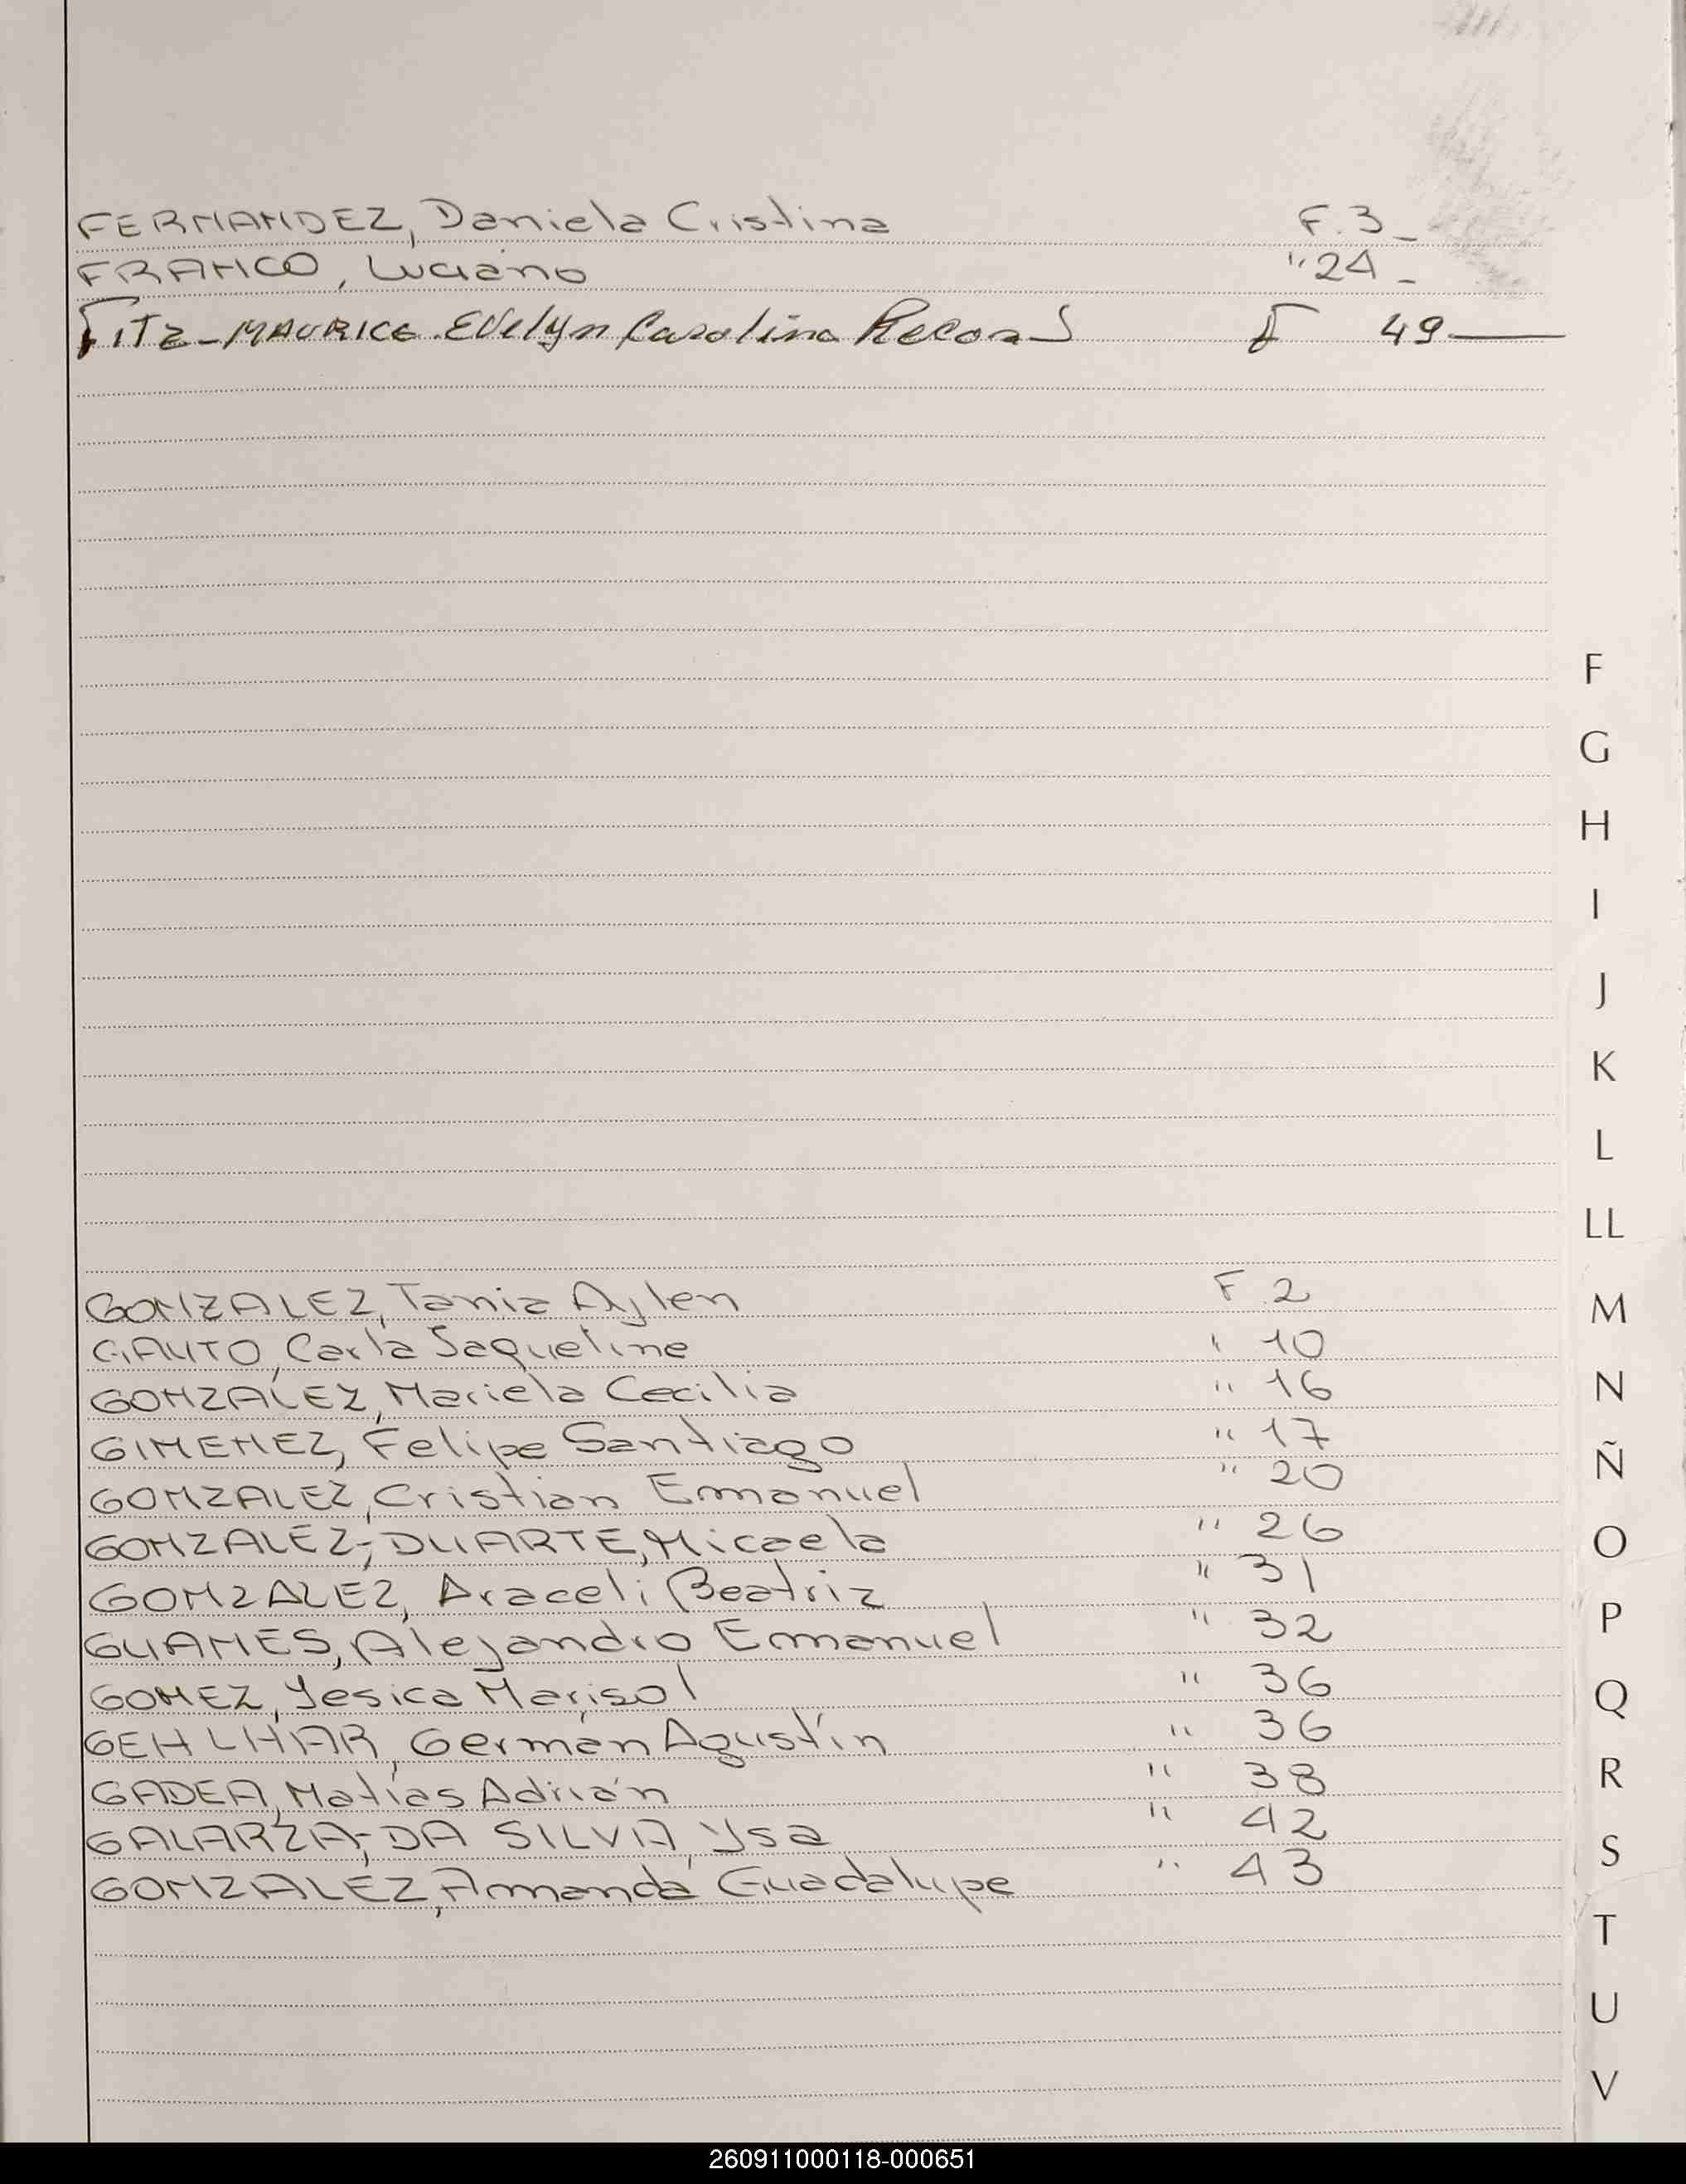 FERNANDEZ, Daniela Cristina F. 3_
FRANCO, Luciano " 24_
FITZ-MAURICE Evelyn Carolina F 49
F
G
H
I
J
K
L
LL
GONZALEZ, Tania Aylen F. 2
M
GAUTO, Carla Jaqueline " 10
GONZALEZ, Mariela Cecilia " 16
N
GIMENEZ, Felipe Santiago " 17
Ñ
GONZALEZ, Cristian Emmanuel " 20
GONZALEZ-DUARTE, Micaela " 26
O
GONZALEZ, Araceli Beatriz " 31
P
GUANES, Alejandro Emmanuel " 32
GOMEZ, Yesica Marisol " 36
Q
GEHLHAR, Germán Agustín " 36
GADEA, Matías Adrián " 38
R
GALARZA-DA SILVA, Ysa " 42
S
GONZALEZ, Amanda Guadalupe " 43
T
U
V
260911000118-000651